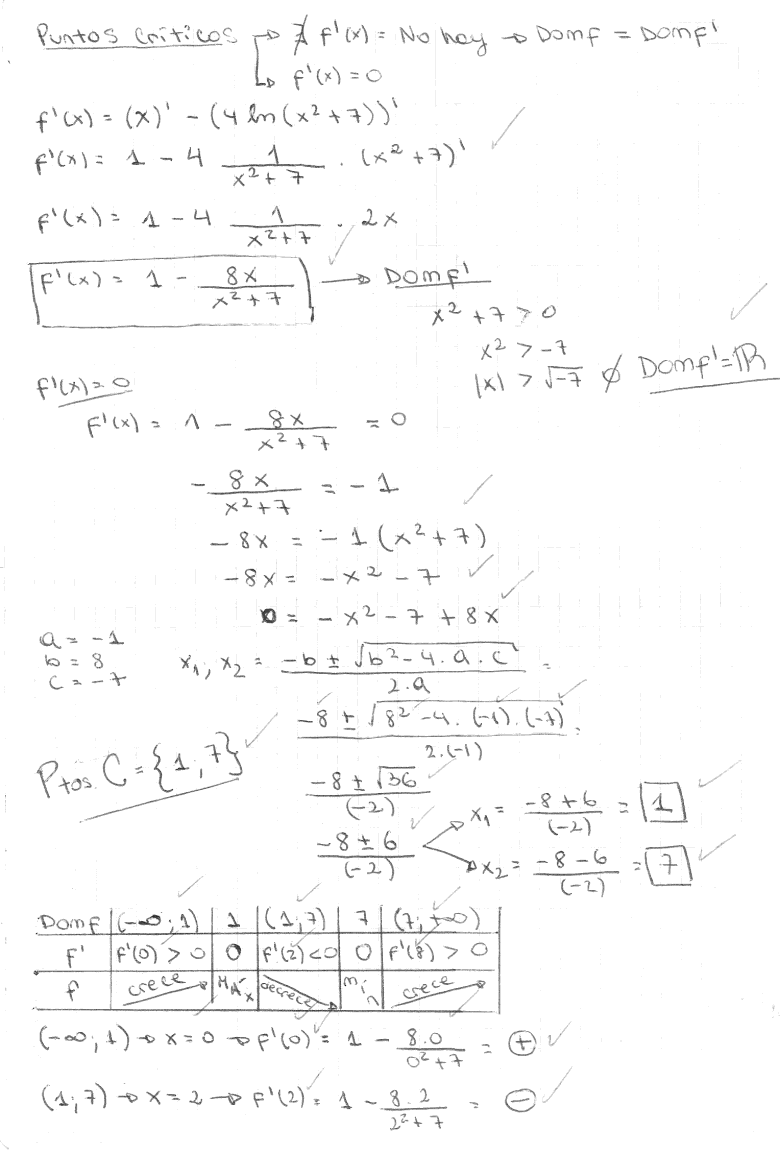 Puntos Críticos → ∄ f'(x) = No hay → Domf = Domf'
↳ f'(x) = 0
f'(x) = (x)' - (4 ln(x² + 7))'
f'(x) = 1 - 4 1/(x² + 7) . (x² + 7)'
f'(x) = 1 - 4 1/(x² + 7) . 2x
f'(x) = 1 - 8x/(x² + 7) → Domf'
x² + 7 > 0
x² > -7
|x| > √-7 ∅ Domf' = ℝ
f'(x) = 0
f'(x) = 1 - 8x/(x² + 7) = 0
- 8x/(x² + 7) = - 1
- 8x = - 1 (x² + 7)
-8x = - x² - 7
0 = - x² - 7 + 8x
a = -1
b = 8
c = -7
x₁, x₂ = (-b ± √(b² - 4. a . c))/(2.a) =
(-8 ± √(8² - 4. (-1). (-7)))/(2.(-1)) =
Ptos. C = {1; 7}
(-8 ± √36)/(-2)
(-8 ± 6)/(-2)
x₁ = (-8 + 6)/(-2) = 1
x₂ = (-8 - 6)/(-2) = 7
Domf | (-∞; 1) | 1 | (1; 7) | 7 | (7; +∞)
f' | f'(0) > 0 | 0 | f'(2) < 0 | 0 | f'(8) > 0
f | crece | MÁx | decrece | mín | crece
(-∞; 1) → x = 0 → f'(0) = 1 - 8.0/(0² + 7) = ⊕
(1; 7) → x = 2 → f'(2) = 1 - 8.2/(2² + 7) = ⊖